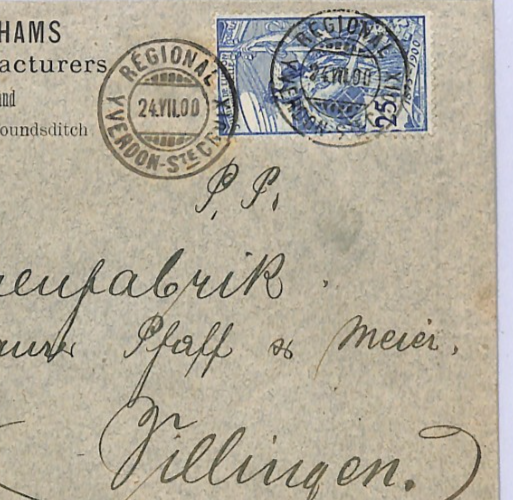 HAMS
acturers
and
oundsditch
RÉGIONAL
24.VII.00
YVERDON-STE CROIX
RÉGIONAL
24.VII.00
25
1900
P. P.
enfabrik.
Pfaff & Meier.
Villingen.